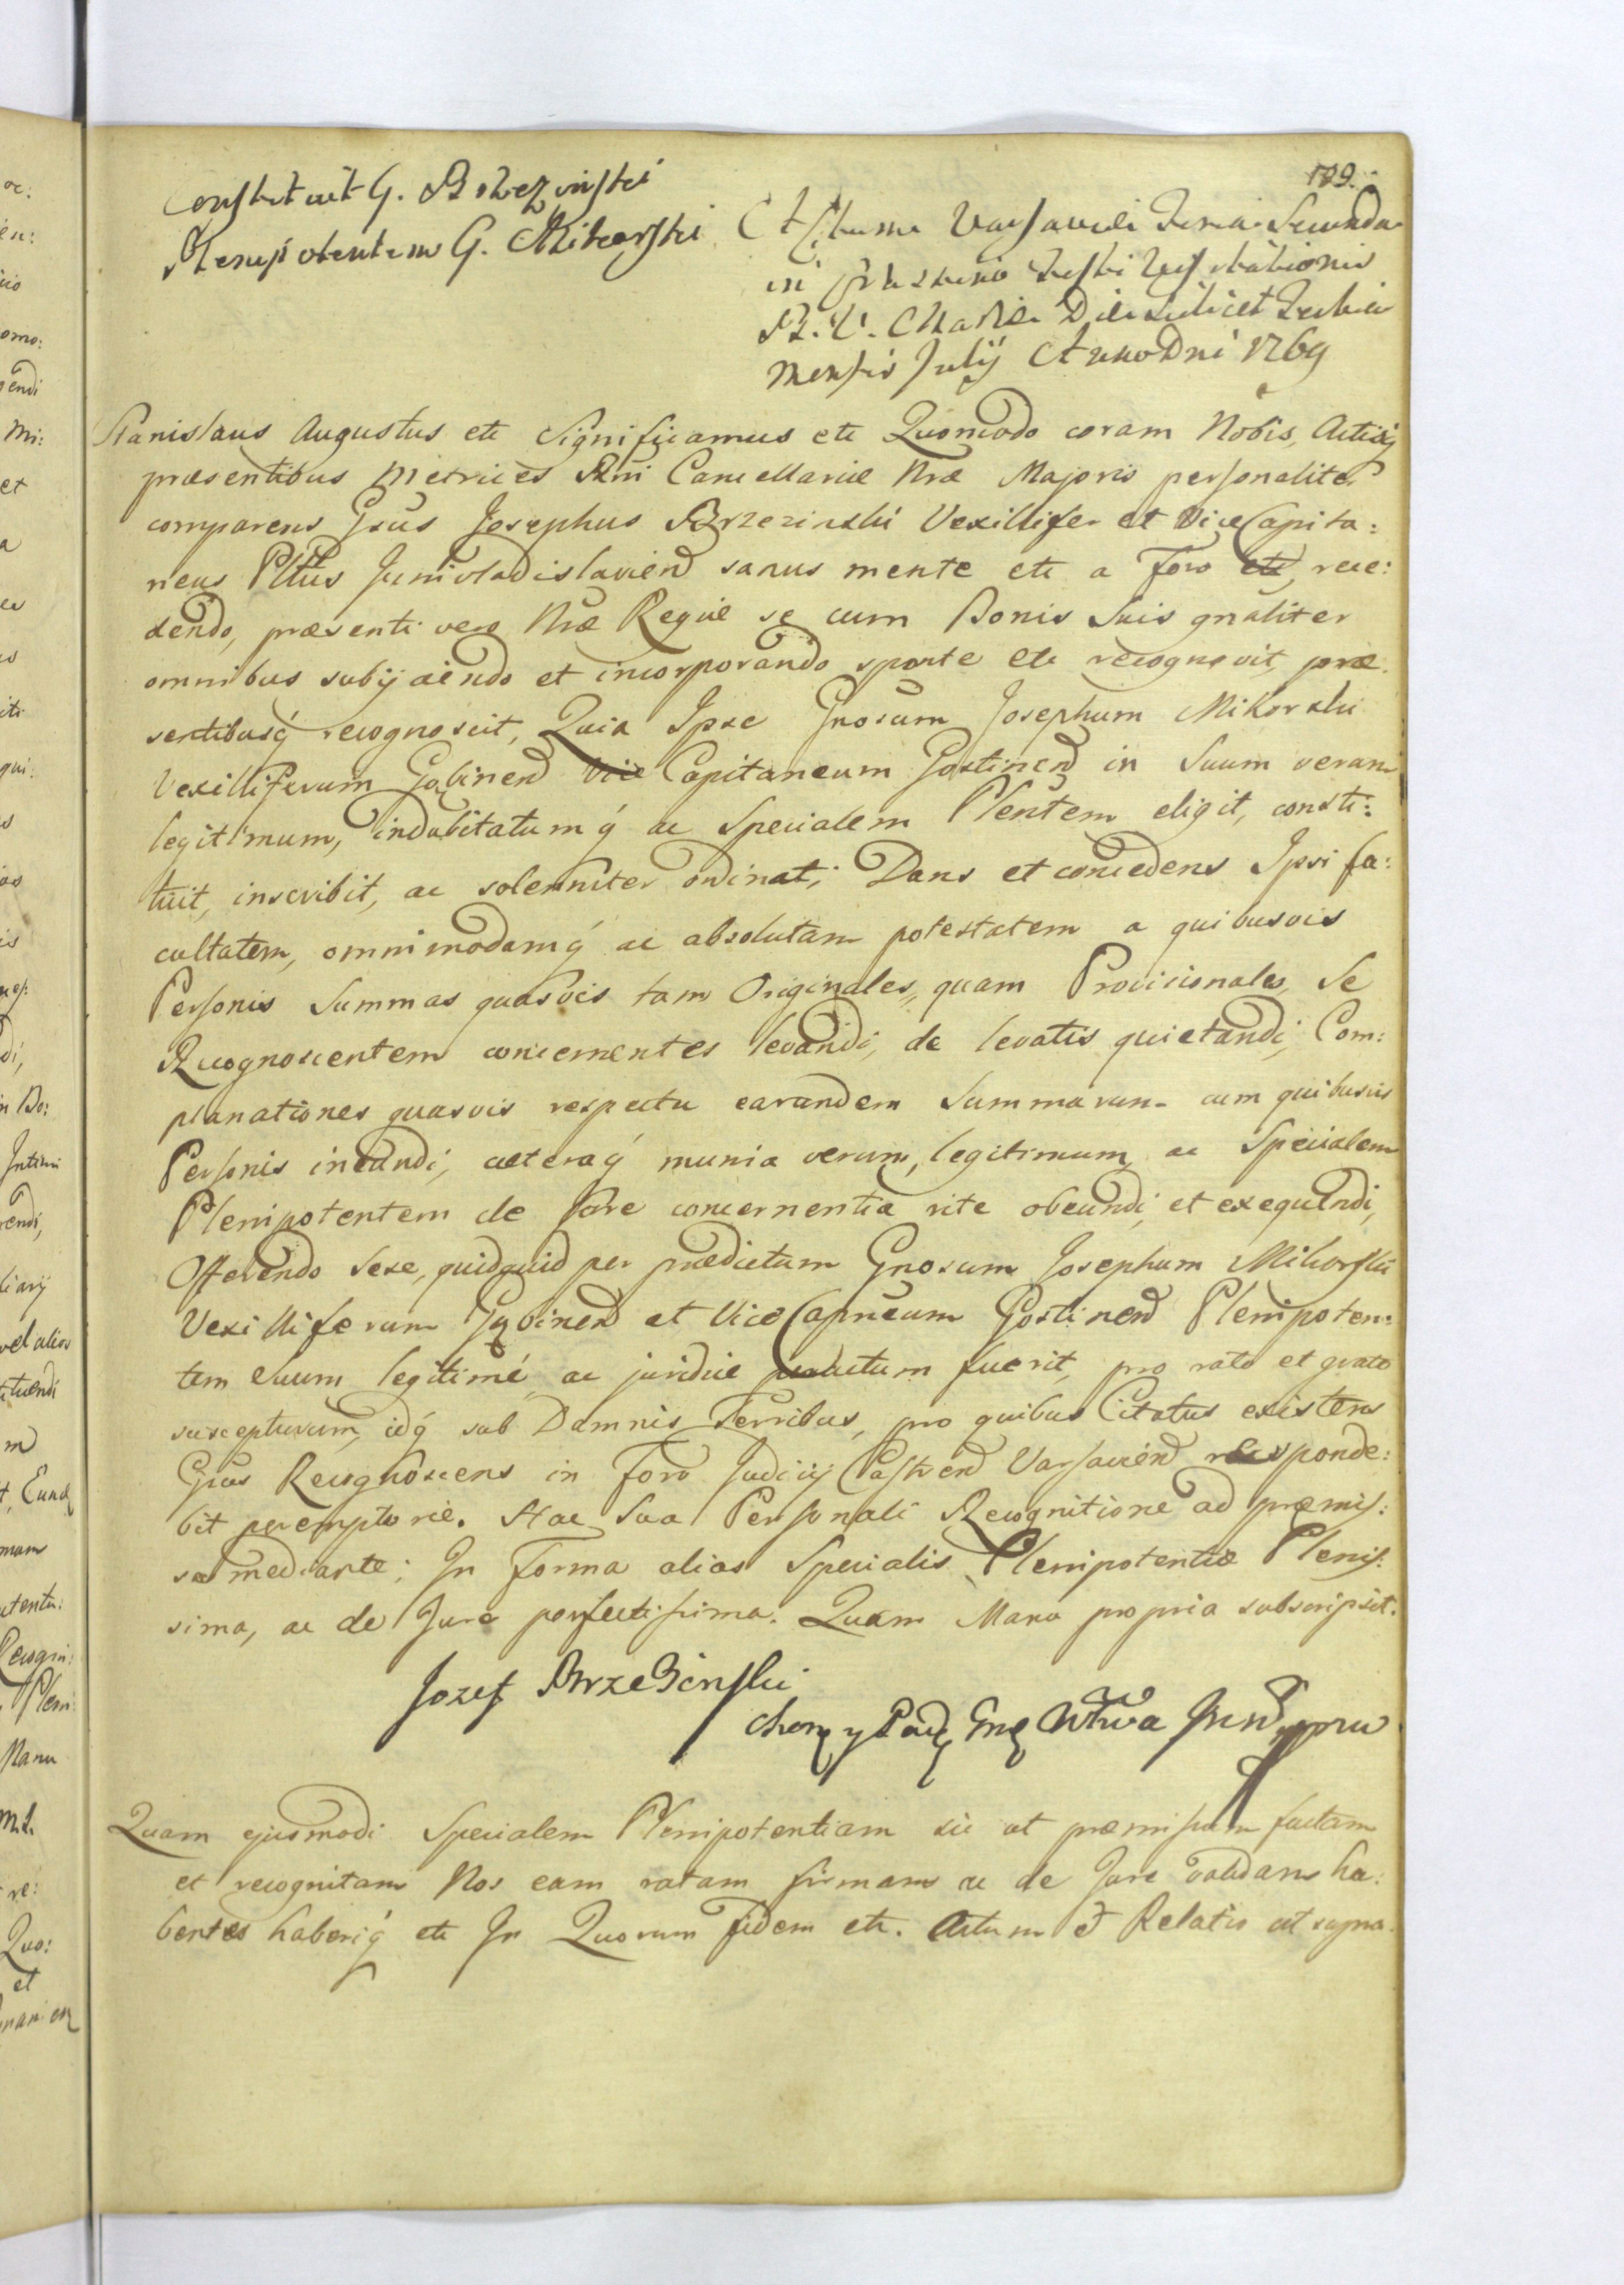 189.
Constituit G. Brzezinski
Plenipotentem G. Mikorski
Actum Varsaviæ Feria Secunda
in Crastino Festi Visitationis
B. V. Mariæ Die scilicet Tertia
Mensis Julij Anno Dni 1769
Stanislaus Augustus etc Significamus etc Quomodo coram Nobis, Actisq́
præsentibus Metrices Rni Cancellariæ Nræ Majoris personaliter
comparens Gsus Josephus Brzezinski Vexillifer et Vice Capita:
neus Pltus Junivladislavien̄ sanus mente etc a Foro etc, rece:
dendo, præsenti vero Nræ Regiæ se cum Bonis Suis gnaliter
omnibus subijciendo et incorporando sponte etc recognovit, præ
sentibusq́ recognoscit, Quia Ipse Gnosum Josephum Mikorski
Vexilliferum Gąbinen̄ Vice Capitaneum Gostinen̄ in Suum verum
legitimum, indubitatumq́ ac Specialem Plentem eligit, consti:
tuit, inscribit, ac solemniter ordinat; Dans et concedens Ipsi fa:
cultatem, omnimodamq́ ac absolutam potestatem a quibusvis
Personis Summas quasvis tam Originales, quam Provisionales, Se
Recognoscentem concernentes levandi, de levatis quietandi, Com:
planationes quasvis respectu earundem Summarum cum quibusvis
Personis ineundi, cæteraq́ munia verum, legitimum, ac Specialem
Plenipotentem de Jure concernentia rite obeundi, et exequendi,
Offerendo sese, quidquid per prædictum Gnosum Josephum Mikorski
Vexilliferum Gąbinen̄ et Vice Capneum Gostinen̄ Plenipoten:
tem Suum legitimé, ac juridice peractum fuerit, pro rato et grato
suscepturum, idq́ sub Damnis Terribus, pro quibus Citatus existens
Gsus Recognoscens in Foro Judicij Castren̄ Varsavien̄ responde:
bit peremptorie. Hac Sua Personali Recognitione ad præmis:
sa mediante; In Forma alias Specialis Plenipotentiæ Plenis:
sima, ac de Jure perfectissima. Quam Manu propria subscripsit.
Jozef Brzezinski
Chorąży Podst Gng Wtwa Inwł mpria
Quam ejusmodi Specialem Plenipotentiam sic ut præmissum factam
et recognitam Nos eam ratam firmam ac de Jure validam ha:
bentes haberiq́ etc In Quorum fidem etc. Actum et Relatio ut supra